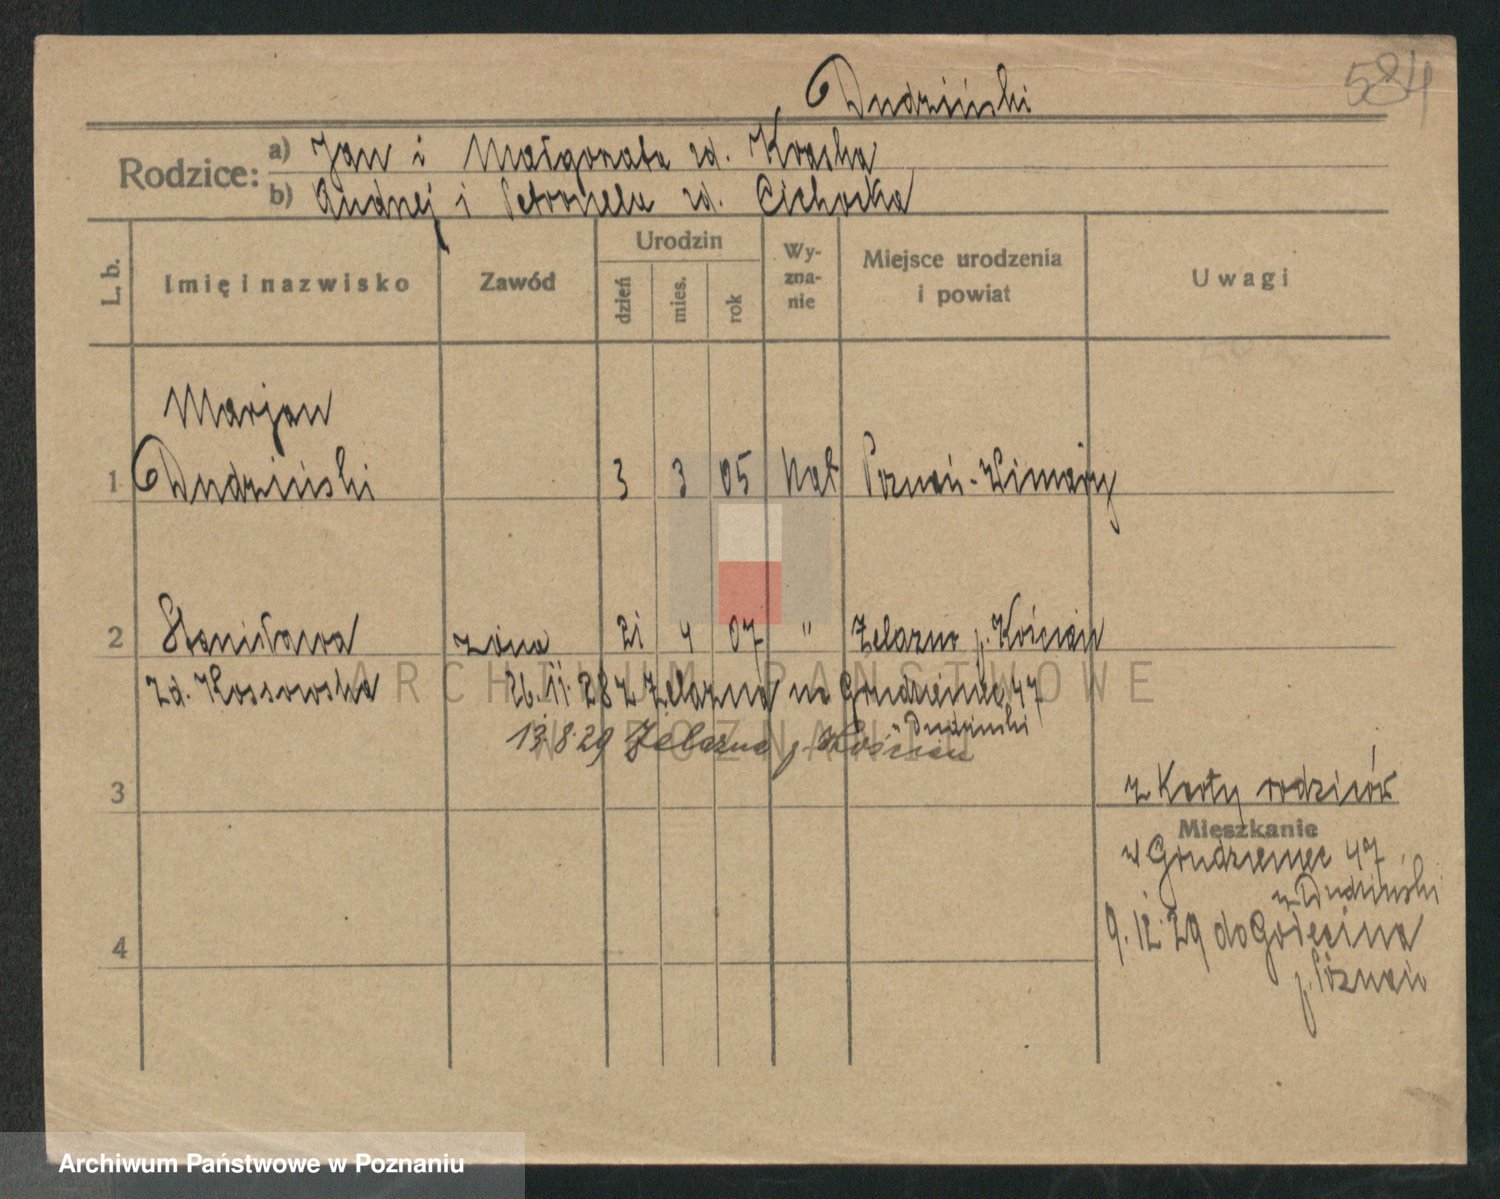 584
Dudziński
Rodzice:
a) Jan i Małgorzata zd. Kraska
b) Andrzej i Petronela zd. Cichocka
L. b.
Imię i nazwisko
Zawód
Urodzin
dzień
mies.
rok
Wy-
zna-
nie
Miejsce urodzenia
i powiat
Uwagi
Marjan
1 Dudziński 3 3 05 kat Poznań-Winiary
2 Stanisława żona 21 4 07 " Żelazno p. Kościan
zd. Kossowska 26.11.28 z Żelazna na Grudzieniec 47
u Dudziński
13.8.29 Żelazno p. Kościan
3
z Karty rodziców
Mieszkanie
Grudzieniec 47
u Dudziński
9.12.29 do Golęcina
p. Poznań
4
ARCHIWUM PAŃSTWOWE
W POZNANIU
Archiwum Państwowe w Poznaniu